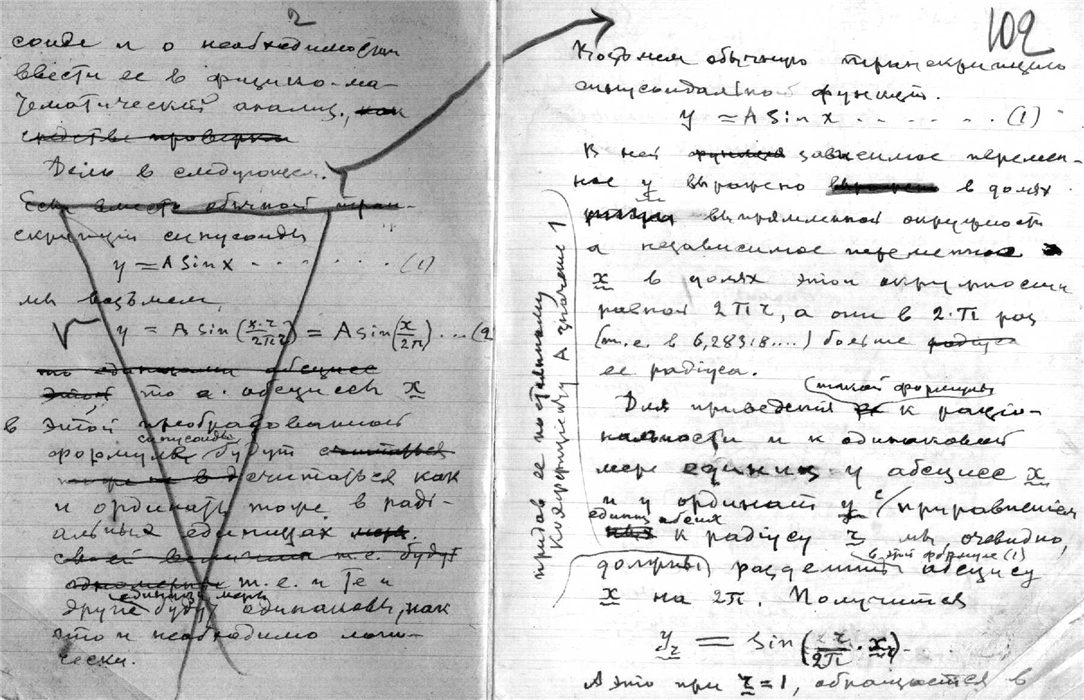 2
соиде и о необходимости
ввести ее в физико-ма-
тематический анализ, как
средства проверки
Дело в следующем.
Если вместо обычной тран-
скрипции синусоиды
y = A Sin x . . . . . . . (1)
мы возьмем
y = A sin (x·r/2πr) = A sin (x/2π) ... (2
то единицами абсцисс
то а абсциссы x
в этой преобразованной
синусоиды
формулы будут считаться
считаться как
и ординаты тоже в ради-
альных единицах
т.е. будут
одномерны т.е. и те и
единицы меры
другие будут одинаковы, как
это и необходимо логи-
чески.
102
Возьмем обычную транскрипцию
синусоидальной функции.
y = A Sin x . . . . . . . (1)
В ней функция зависимое перемен-
ное y выражено в долях
выпрямленной окружности
а независимое переменное
x в долях этой окружности
равной 2πr, а они в 2·π раз
(т.е. в 6,28318....) больше радиуса
ее радиуса.
такой формулы
Для приведения к рацио-
нальности и к одинаковой
мере единиц у абсцисс x
и у ординат y с приравнением
единиц абсцисс
к радиусу r мы, очевидно,
в этой формуле (1)
должны разделить абсциссу
x на 2π. Получится
y_r = Sin (r/2π · x)
А это при r = 1, обращается в
придав ее постоянному
коэффициенту A значение 1